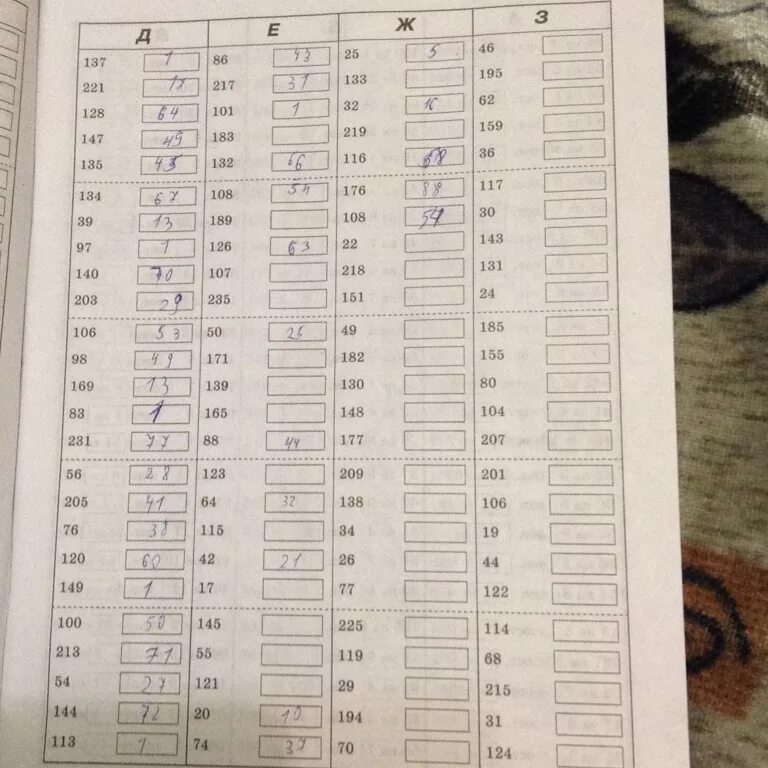 Д Е Ж З
137 1 86 43 25 5 46
221 17 217 31 133 195
128 64 101 1 32 16 62
147 49 183 219 159
135 45 132 66 116 36
134 67 108 54 176 88 117
39 13 189 108 54 30
97 1 126 63 22 143
140 70 107 218 131
203 29 235 151 24
106 53 50 25 49 185
98 49 171 182 155
169 13 139 130 80
83 1 165 148 104
231 77 88 44 177 207
56 28 123 209 201
205 41 64 32 138 106
76 38 115 34 19
120 60 42 21 26 44
149 1 17 77 122
100 50 145 225 114
213 71 55 119 68
54 27 121 29 215
144 72 20 10 194 31
113 1 74 37 70 124